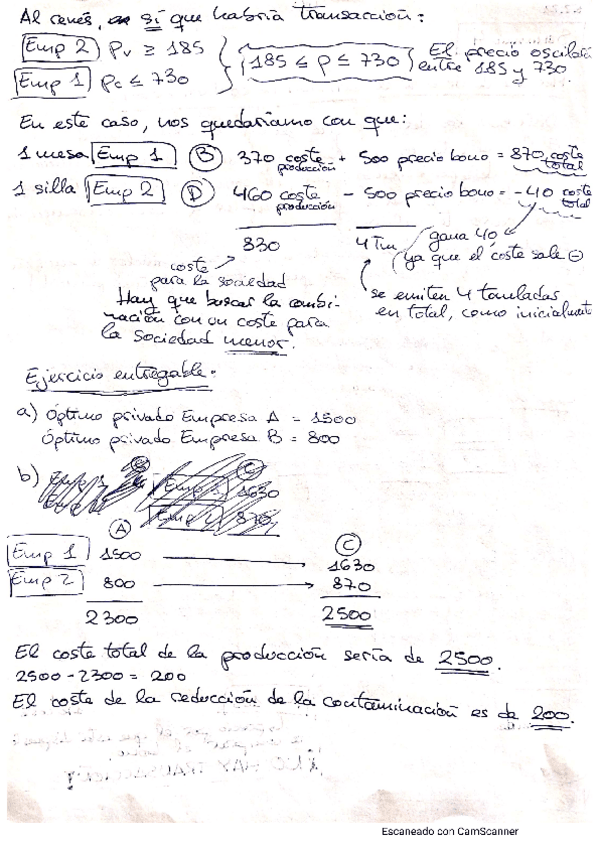 Al revés, sí que habría transacción:
Emp 2 Pv ≥ 185
Emp 1 Pc ≤ 730
185 ≤ p ≤ 730
El precio oscilará
entre 185 y 730
En este caso, nos quedaríamos con que:
1 mesa Emp 1 (B) 370 coste producción + 500 precio bono = 870 coste total
1 silla Emp 2 (D) 460 coste producción - 500 precio bono = -40 coste total
830 4 Tm gana 40,
ya que el coste sale ⊖
coste
para la sociedad
se emiten 4 toneladas
en total, como inicialmente
Hay que buscar la combi-
nación con un coste para
la sociedad menor.
Ejercicio entregable:
a) Óptimo privado Empresa A = 1500
Óptimo privado Empresa B = 800
b)
(A) (C)
Emp 1 1500 1630
Emp 2 800 870
2300 2500
El coste total de la producción sería de 2500.
2500 - 2300 = 200
El coste de la reducción de la contaminación es de 200.
Escaneado con CamScanner